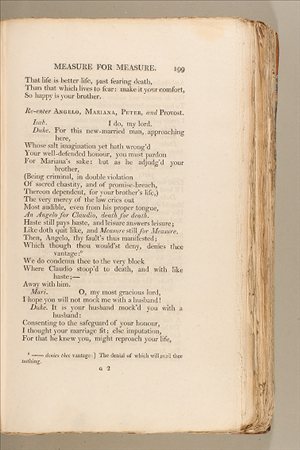 MEASURE FOR MEASURE. 199
That life is better life, past fearing death,
Than that which lives to fear: make it your comfort,
So happy is your brother.
Re-enter ANGELO, MARIANA, PETER, and Provost.
Isab. I do, my lord.
Duke. For this new-married man, approaching
here,
Whose salt imagination yet hath wrong'd
Your well-defended honour, you must pardon
For Mariana's sake: but as he adjudg'd your
brother,
(Being criminal, in double violation
Of sacred chastity, and of promise-breach,
Thereon dependent, for your brother's life,)
The very mercy of the law cries out
Most audible, even from his proper tongue,
An Angelo for Claudio, death for death.
Haste still pays haste, and leisure answers leisure;
Like doth quit like, and Measure still for Measure.
Then, Angelo, thy fault's thus manifested;
Which though thou would'st deny, denies thee
vantage:⁸
We do condemn thee to the very block
Where Claudio stoop'd to death, and with like
haste;—
Away with him.
Mari. O, my most gracious lord,
I hope you will not mock me with a husband!
Duke. It is your husband mock'd you with a
husband:
Consenting to the safeguard of your honour,
I thought your marriage fit; else imputation,
For that he knew you, might reproach your life,
⁸ —— denies thee vantage:] The denial of which will avail thee
nothing.
G 2